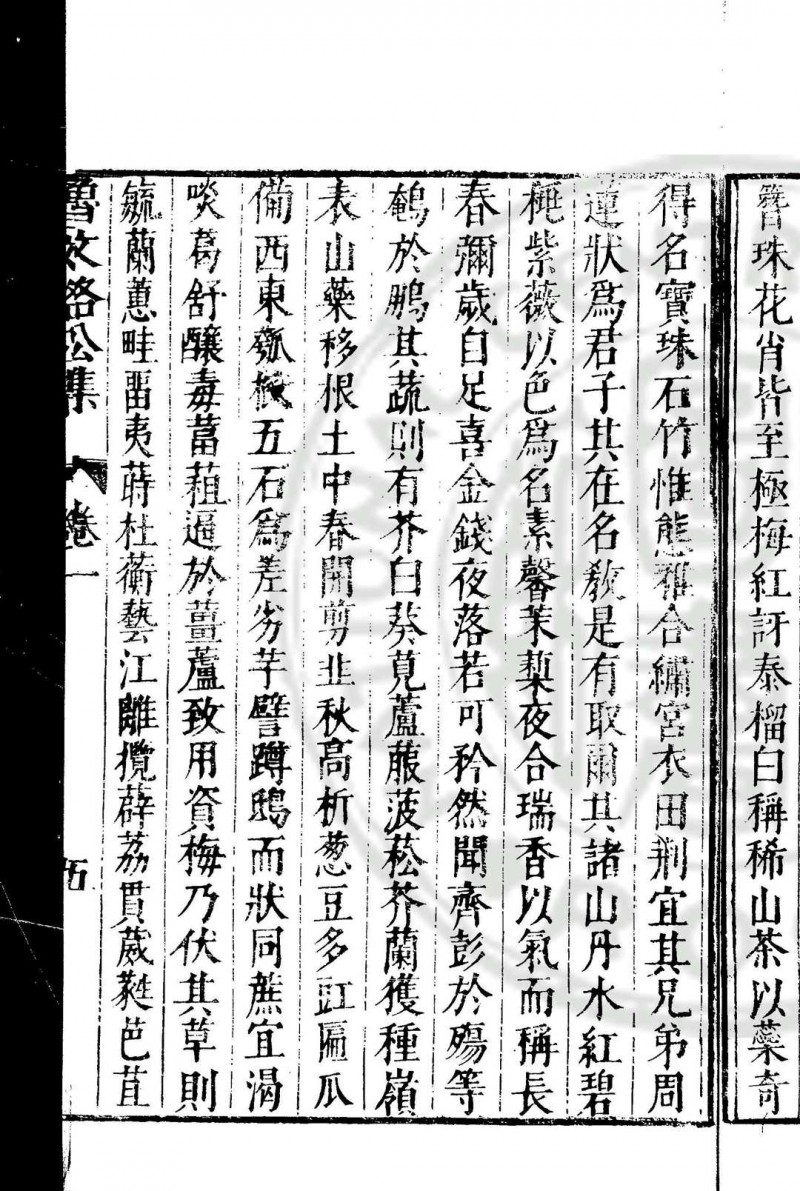 簪珠花肖皆至極梅紅訝泰榴白稱稀山茶以蘂奇
得名寶珠石竹惟態雅合繡宮衣田荆宜其兄弟周
蓮狀爲君子其在名敎是有取爾其諸山丹水紅碧
桃紫薇以色爲名素馨茉藜夜合瑞香以氣而稱長
春彌歲自足喜金錢夜落若可矜然聞齊彭於殤等
鵪於鵬其蔬則有芥白葵莧蘆菔菠菘芥蘭獲種嶺
表山藥移根土中春開剪韭秋高析葱豆多豇匾瓜
備西東瓠
五石爲差劣芋譬蹲鴟而狀同蔗宜渴
啖葛舒釀毒菖葅遍於薑蘆致用資梅乃伏其草則
毓蘭蕙畦畱夷蒔杜蘅藝江離攬薜荔貫葳蕤芭苴
集
卷一
五